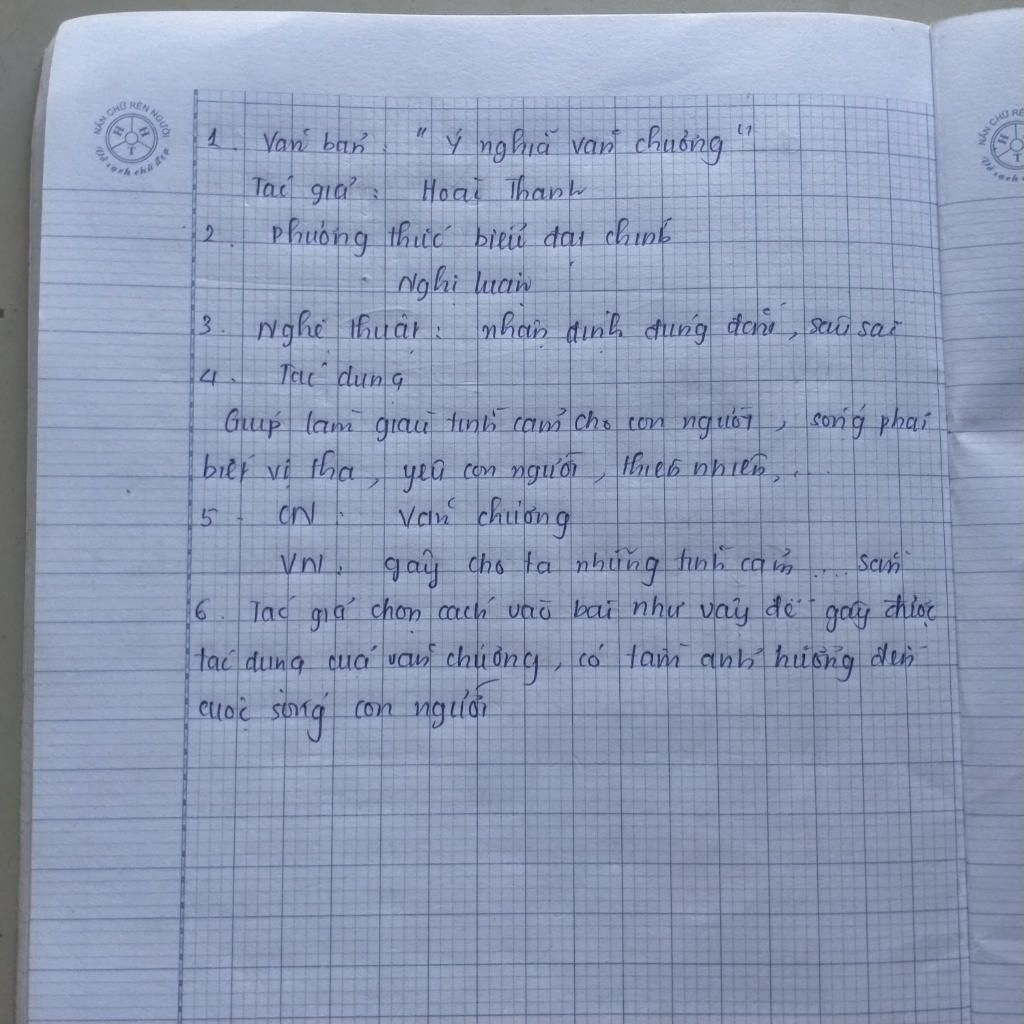 NẮN CHỮ RÈN NGƯỜI
H H T
Vở sạch chữ đẹp
1. Văn bản: "Ý nghĩa văn chương"
Tác giả: Hoài Thanh
2. Phương thức biểu đạt chính
Nghị luận
3. Nghệ thuật: nhận định đúng đắn, sâu sắc
4. Tác dụng
Giúp làm giàu tình cảm cho con người, sống phải
biết vị tha, yêu con người, thiên nhiên,...
5. CN: Văn chương
VN: gây cho ta những tình cảm ... sẵn
6. Tác giả chọn cách vào bài như vậy để gây được
tác dụng của văn chương, có tầm ảnh hưởng đến
cuộc sống con người
NẮN CHỮ RÈN